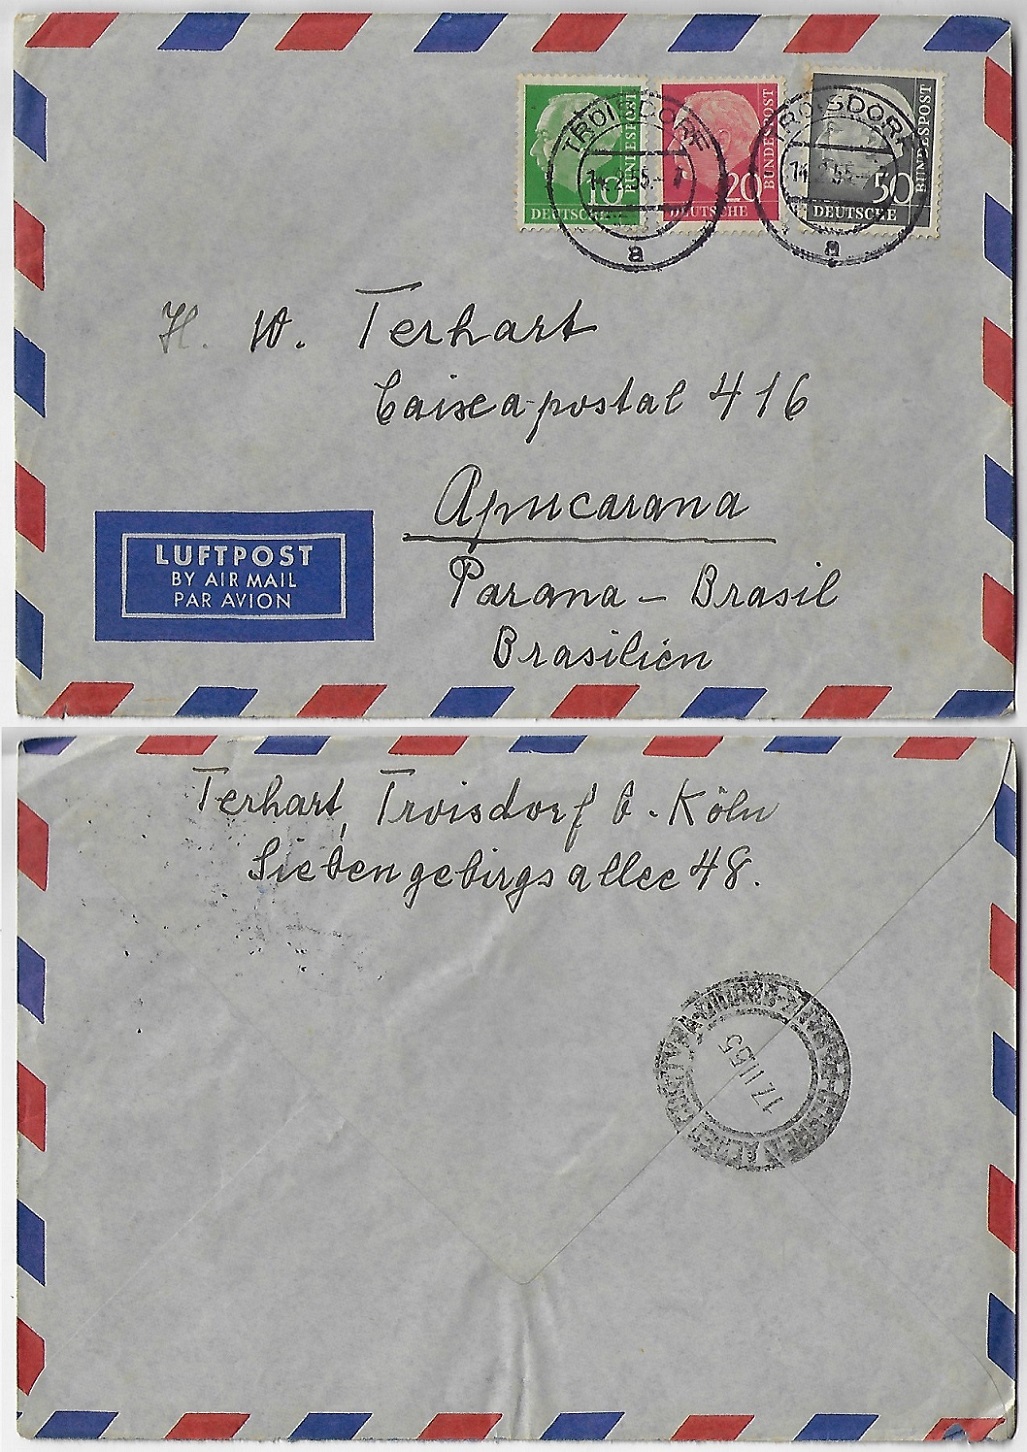 10 DEUTSCHE BUNDESPOST
20 DEUTSCHE BUNDESPOST
50 DEUTSCHE BUNDESPOST
TROISDORF
14.2.55.-7
a
TROISDORF
14.2.55.-7
a
H. W. Terhart
Caixa-postal 416
Apucarana
Parana - Brasil
Brasilien
LUFTPOST
BY AIR MAIL
PAR AVION
Terhart, Troisdorf b. Köln
Siebengebirgsallee 48.
17 II 55